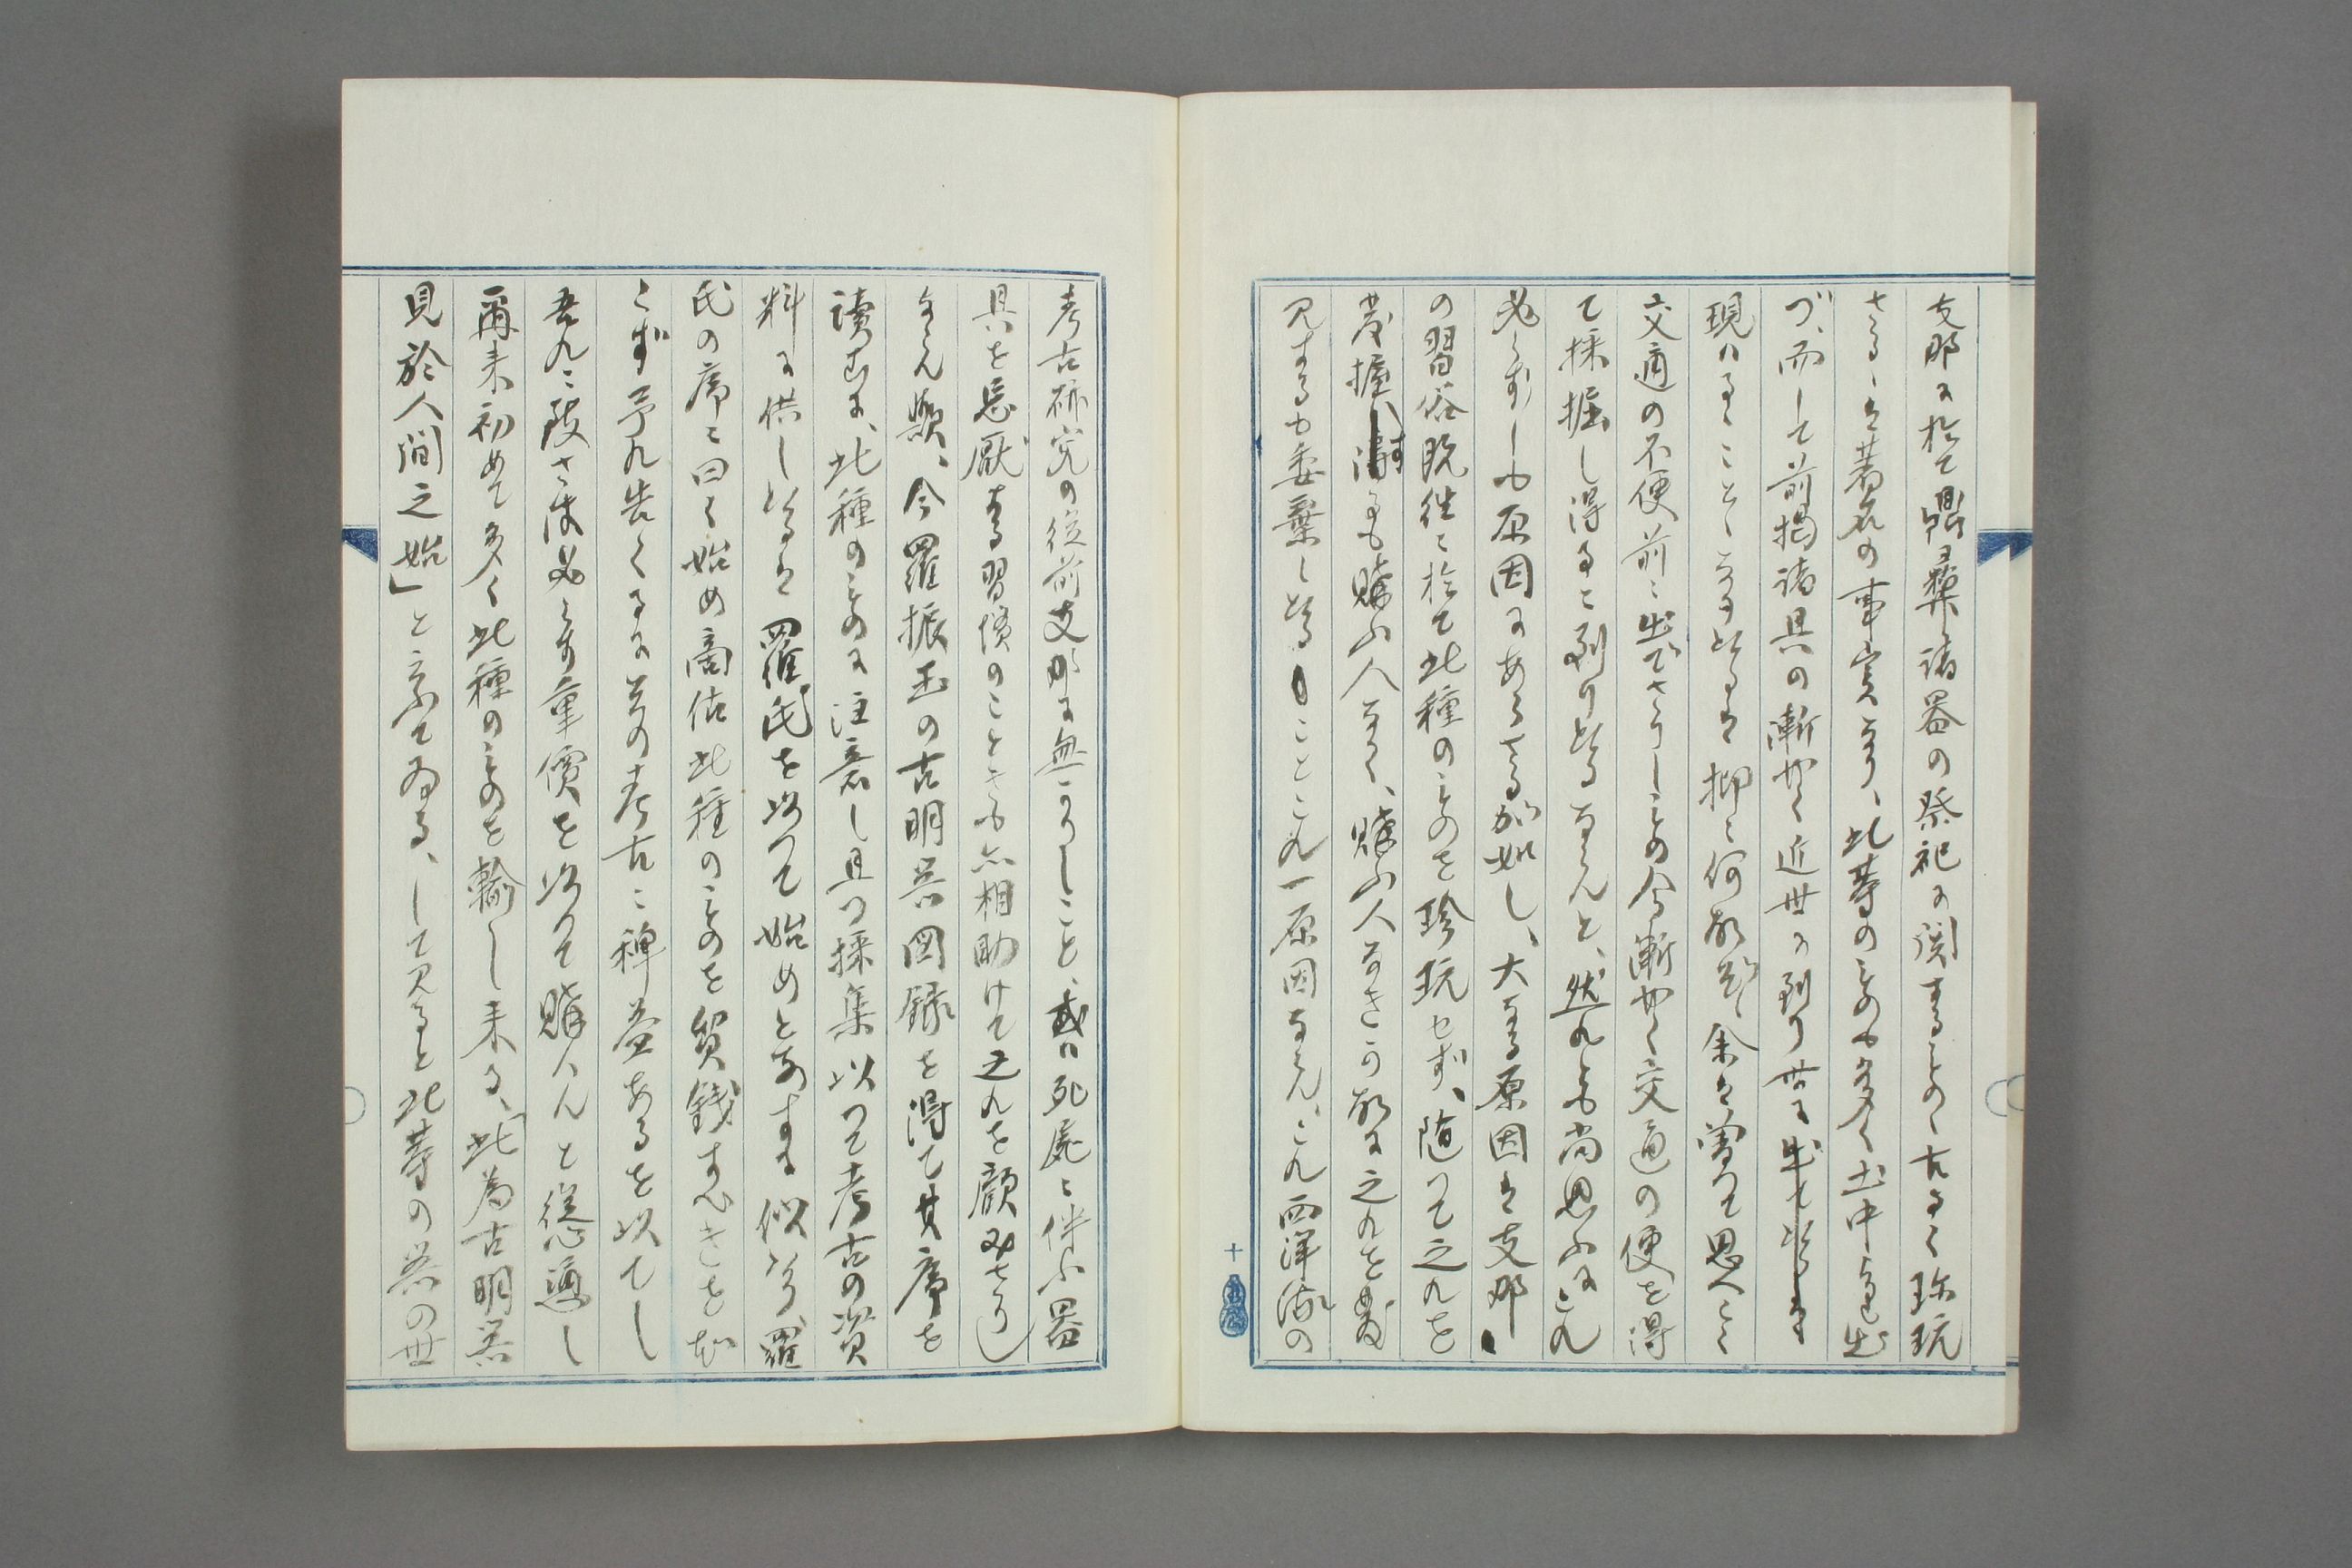 支那に於て鼎彝諸器の祭祀に関するもの古るく珍玩
さるゝは著名の事実なり、此等のものや多く土中より出
づ、而して前掲諸具の漸やく近世に到り世に
現はるゝことゝなりたるは抑こ何故歟、余は曽つて思へらく
交通の不便前に出でざりしもの今漸やく交通の便を得
て採掘し得るに到りたるならんと、然れども尚思ふにこれ
必らずしも原因にあらざる如し、大なる原因は支那
の習俗既往に於て此種のものを珍玩せず、随つて之れを
発掘するも購ふ人なく、購ふ人なきの故に之れを発
見するも委棄したることこれ一原因ならん、これ西洋流の
考古研究の従前支那に無かりしこと、或は死屍に伴ふ器
具を忌厭する習慣のことさも亦相助けて之れを顧みざりし
ならん歟、今羅振玉の古明器図録を得て其序を
読むに、此種のものに注意し且つ採集以つて考古の資
料に供したるは羅氏を以つて始めとなすに似たり、羅
氏の序に曰く始め商估此種のものを貿銭すべきを知
らず予れ告くるにその考古に裨益あるを以てし
吾れに致さば必らず重價を以つて購はんと慫慂し
爾来初めて多く此種のものを輸し来る、「此為古明器
見於人間之始」と言ふてゐる、して見ると此等の器の世
十